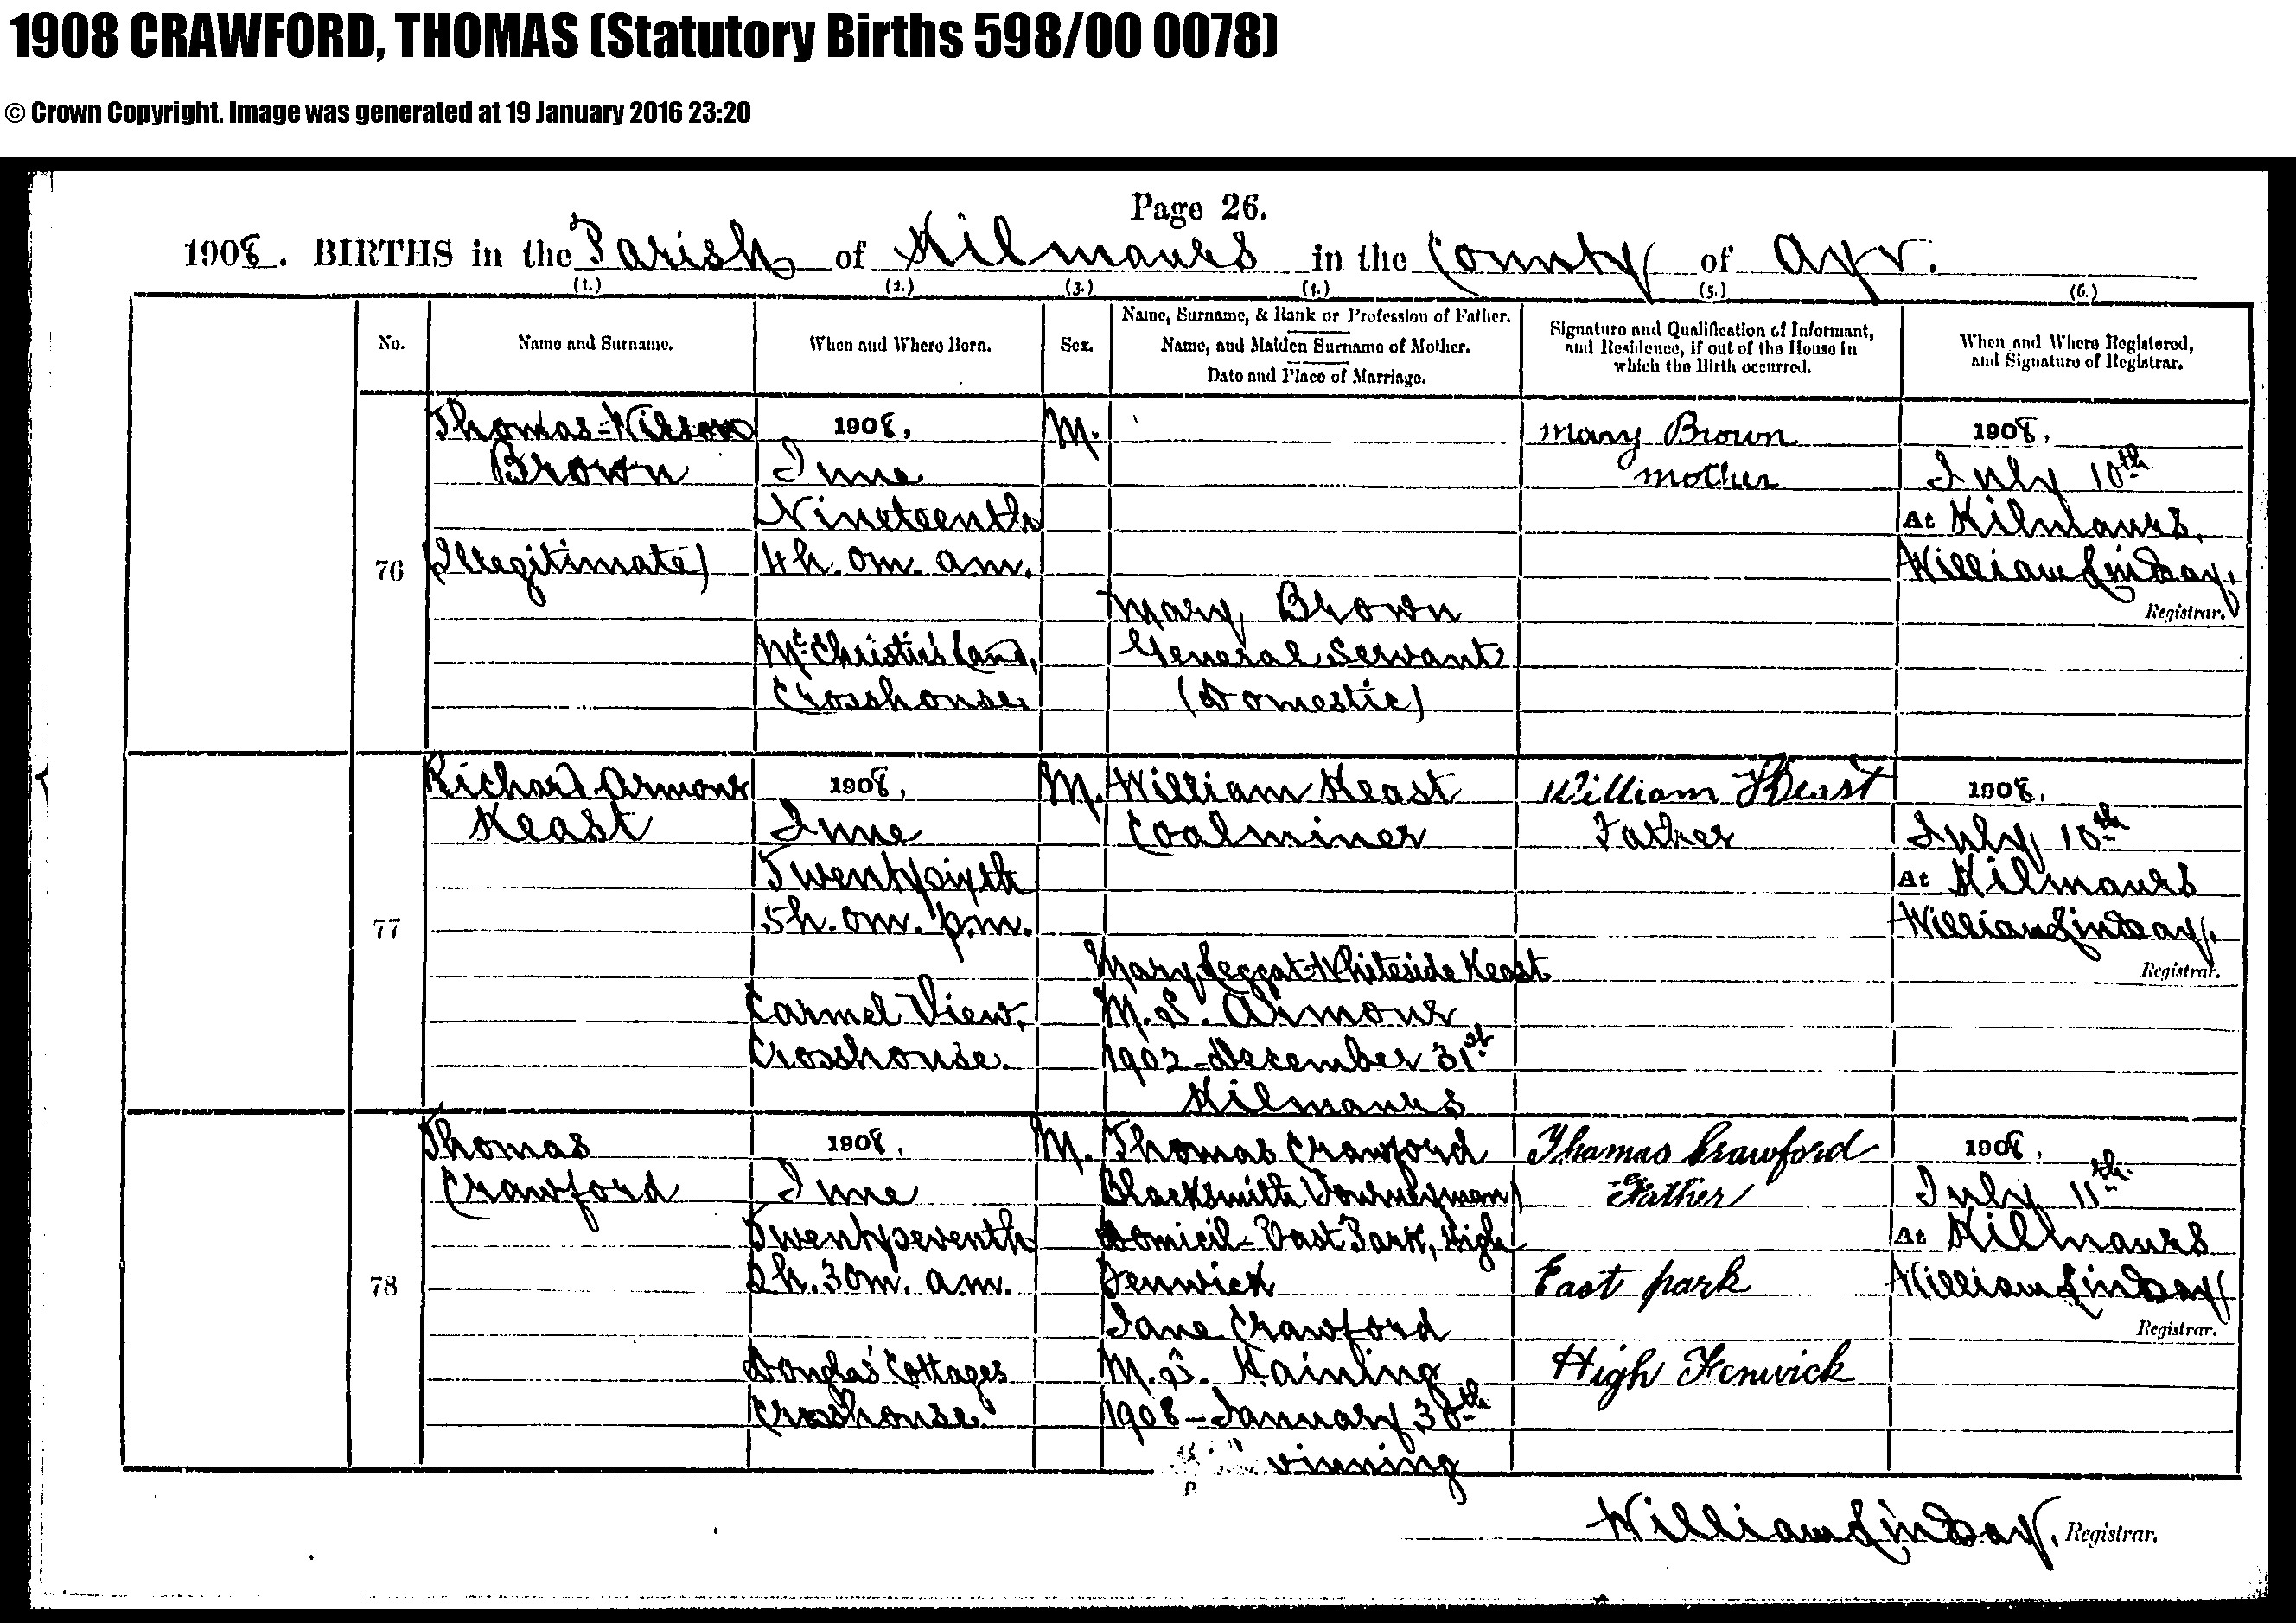 1908 CRAWFORD, THOMAS (Statutory Births 598/00 0078)
© Crown Copyright. Image was generated at 19 January 2016 23:20
Page 26.
1908. BIRTHS in the Parish of Kilmaurs in the County of Ayr.
(1.) (2.) (3.) (4.) (5.) (6.)
No.
Name and Surname.
When and Where Born.
Sex.
Name, Surname, & Rank or Profession of Father.
Name, and Maiden Surname of Mother.
Date and Place of Marriage.
Signature and Qualification of Informant,
and Residence, if out of the House in
which the Birth occurred.
When and Where Registered,
and Signature of Registrar.
76
Thomas-Wilson
Brown
(Illegitimate)
1908,
June
Nineteenth
4h. 0m. a.m.
McChristie's Land,
Crosshouse
M.
Mary Brown
General Servant
(Domestic)
Mary Brown
mother
1908,
July 10th
At Kilmaurs.
William Lindsay.
Registrar.
77
Richard Armour
Keast
1908,
June
Twentysixth
5h. 0m. p.m.
Carmel View,
Crosshouse.
M.
William Keast
Coalminer
Mary Leggat-Whiteside Keast
M.S. Armour
1902-December 31st
Kilmaurs
William Keast
Father
1908,
July 10th
At Kilmaurs
William Lindsay,
Registrar.
78
Thomas
Crawford
1908,
June
Twentyseventh
2h. 30m. a.m.
Douglas' Cottages
Crosshouse
M.
Thomas Crawford
Blacksmith (Journeyman)
Domicil-East Park, High
Fenwick
Jane Crawford
M.S. Haining
1908-January 30th
winning
Thomas Crawford
Father
East park
High Fenwick
1908,
July 11th
At Kilmaurs
William Lindsay
Registrar.
William Lindsay, Registrar.